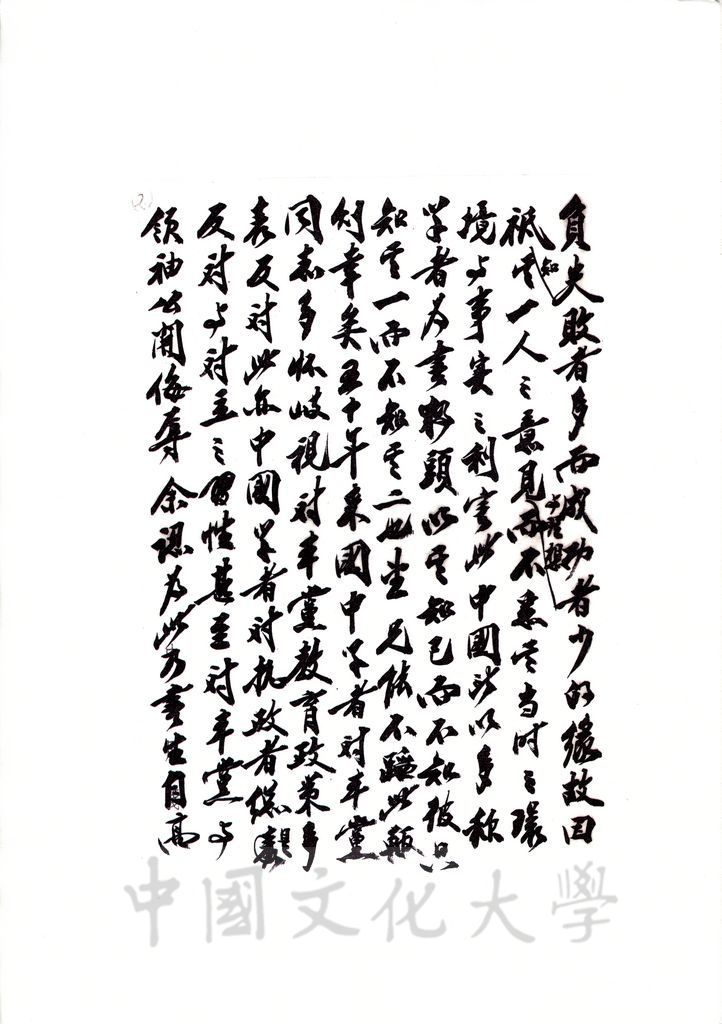 負失敗者多而成功者少的緣故因
祗知其一人之意見與理想而不悉其當時之環
境與事實之利害此中國所以多稱
學者為書獃頭以其知己而不知彼只
知其一而不知其二也望兄能不蹈此輒
則幸矣五十年來國中學者對本黨
同志多懷歧視對本黨教育政策多
表反對此亦中國學者對執政者
反對與對立之習性甚至對本黨與
領袖公開侮辱余認為此乃書生自高
中國文化大學